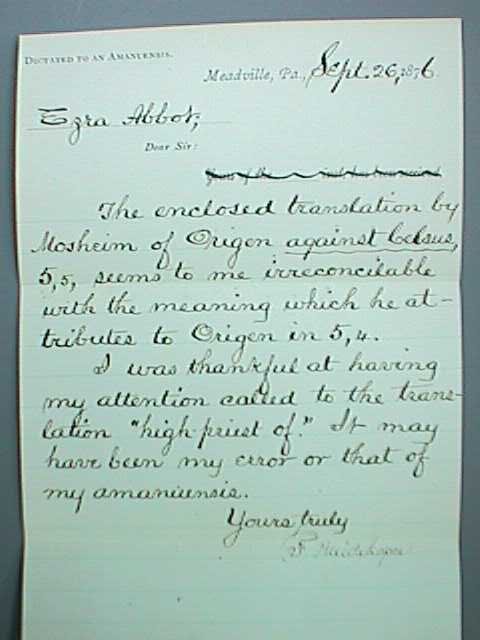 DICTATED TO AN AMANUENSIS.
Meadville, Pa., Sept. 26, 1876.
Ezra Abbot,
Dear Sir:
Yours of the
The enclosed translation by
Mosheim of Origen against Celsus,
5,5, seems to me irreconcilable
with the meaning which he at-
tributes to Origen in 5,4.
I was thankful at having
my attention called to the trans-
lation "high-priest of." It may
have been my error or that of
my amanuensis.
Yours truly
F. Huidekoper